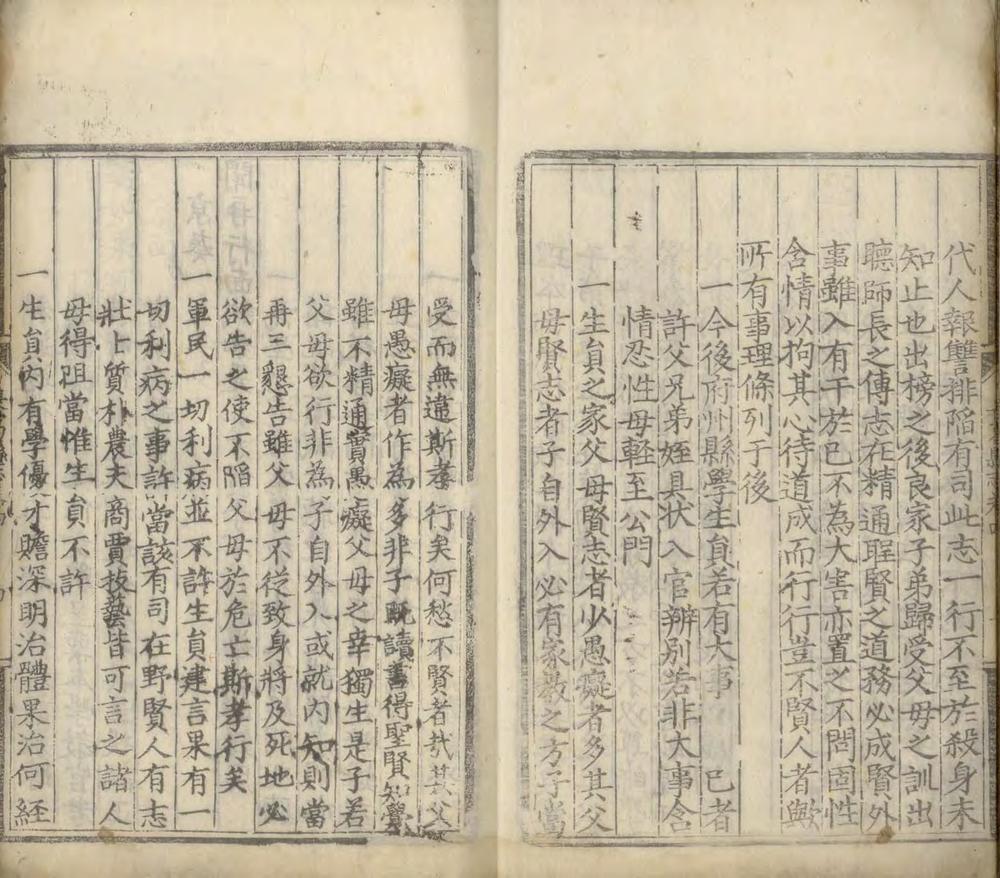 代人報讐排陷有司此志一行不至於殺身未
知止也出榜之後良家子弟歸受父母之訓出
聽師長之傳志在精通聖賢之道務必成賢外
事雖入有干於已不為大害亦置之不問固性
含情以拘其心待道成而行行豈不賢人者歟
所有事理條列于後
一今後府州縣學生員若有大事 已者
許父兄弟姪具状入官辨别若非大事含
情忍性毋輕至公門
一生員之家父母賢志者少愚癡者多其父
母賢志者子自外入必有家教之方子當
受而無違斯孝行矣何愁不賢者哉其父
母愚癡者作為多非子既讀書得聖賢知覺
雖不精通實愚癡父母之幸獨生是子若
父母欲行非為子自外入或就内知則當
再三懇告雖父母不從致身將及死地必
欲告之使不陷父母於危亡斯孝行矣
一軍民一切利病並不許生員建言果有一
切利病之事許當該有司在野賢人有志
壯士質朴農夫商賈技藝皆可言之諸人
毋得阻當惟生員不許
一生員内有學優才贍深明治體果治何經